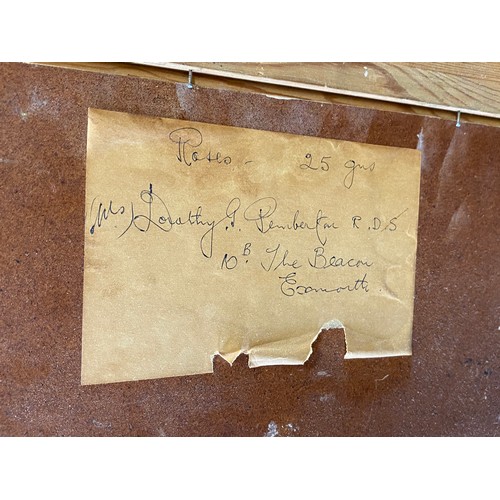 Roses - 25 gns
(Mrs) Dorothy G. Pemberton R.D.S
10B. The Beacon
Exmouth.